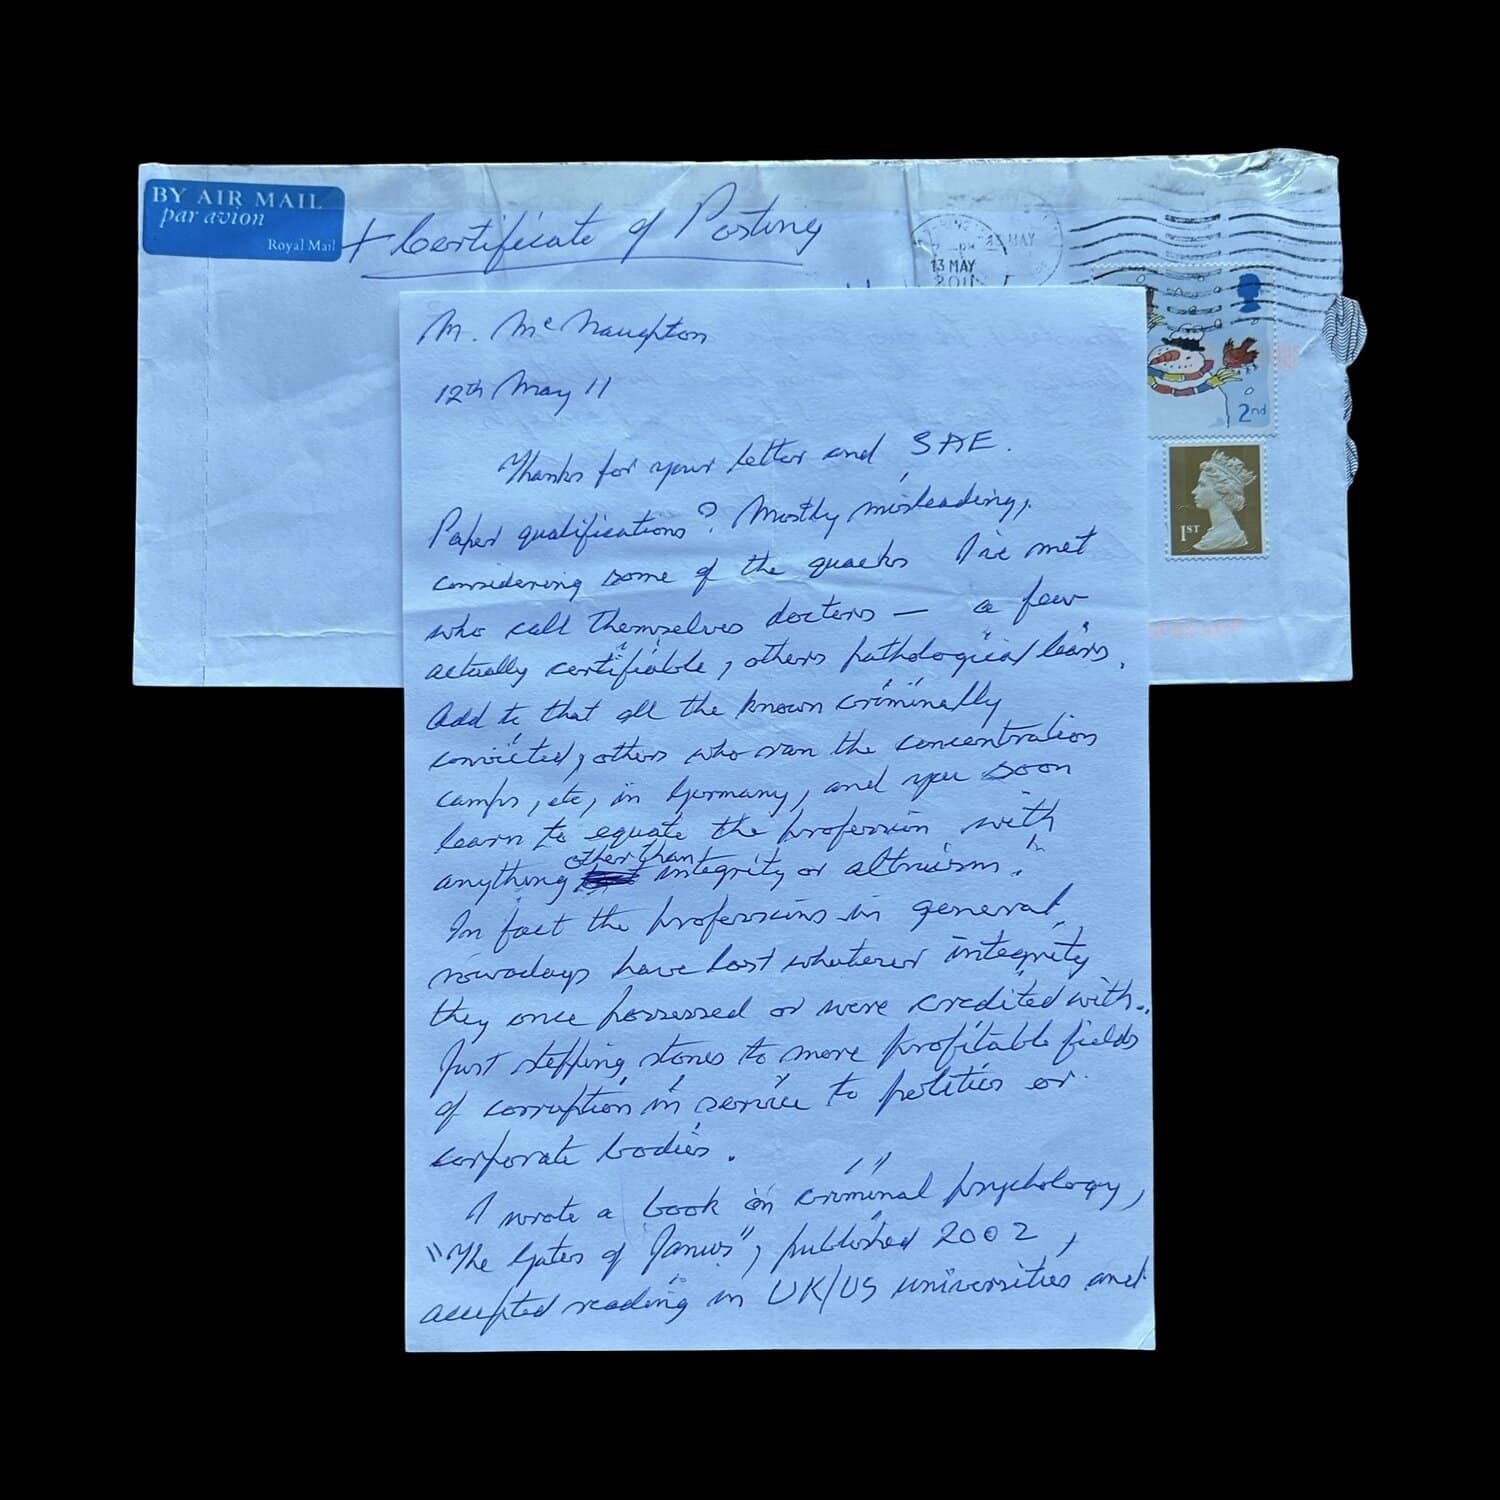 BY AIR MAIL
par avion
Royal Mail
+ Certificate of Posting
13 MAY
2011
2nd
1ST
M. McNaughton
12th May 11
Thanks for your letter and SAE.
Paper qualifications? Mostly misleading,
considering some of the quacks I've met
who call themselves doctors — a few
actually certifiable, others pathological liars.
Add to that all the known criminally
convicted, others who ran the concentration
camps, etc, in Germany, and you soon
learn to equate the profession with
anything other than integrity or altruism.
In fact the professions in general
nowadays have lost whatever integrity
they once possessed or were credited with..
Just stepping stones to more profitable fields
of corruption in service to politics or
corporate bodies.
I wrote a book on criminal psychology,
"The Gates of Janus", published 2002,
accepted reading in UK/US universities and